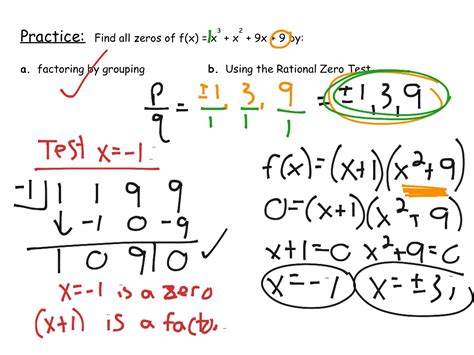 Practice: Find all zeros of f(x) = 1x³ + x² + 9x + 9 by:
a. factoring by grouping b. Using the Rational Zero Test
p/q = ±1, 3, 9 / 1, 1, 1 = ±1, 3, 9
Test x=-1
-1 1 1 9 9
↓ -1 0 -9
1 0 9 0
x=-1 is a zero
(x+1) is a facto
f(x)=(x+1)(x²+9)
0=(x+1)(x²+9)
x+1=0 x²+9=0
x=-1 x=±3i